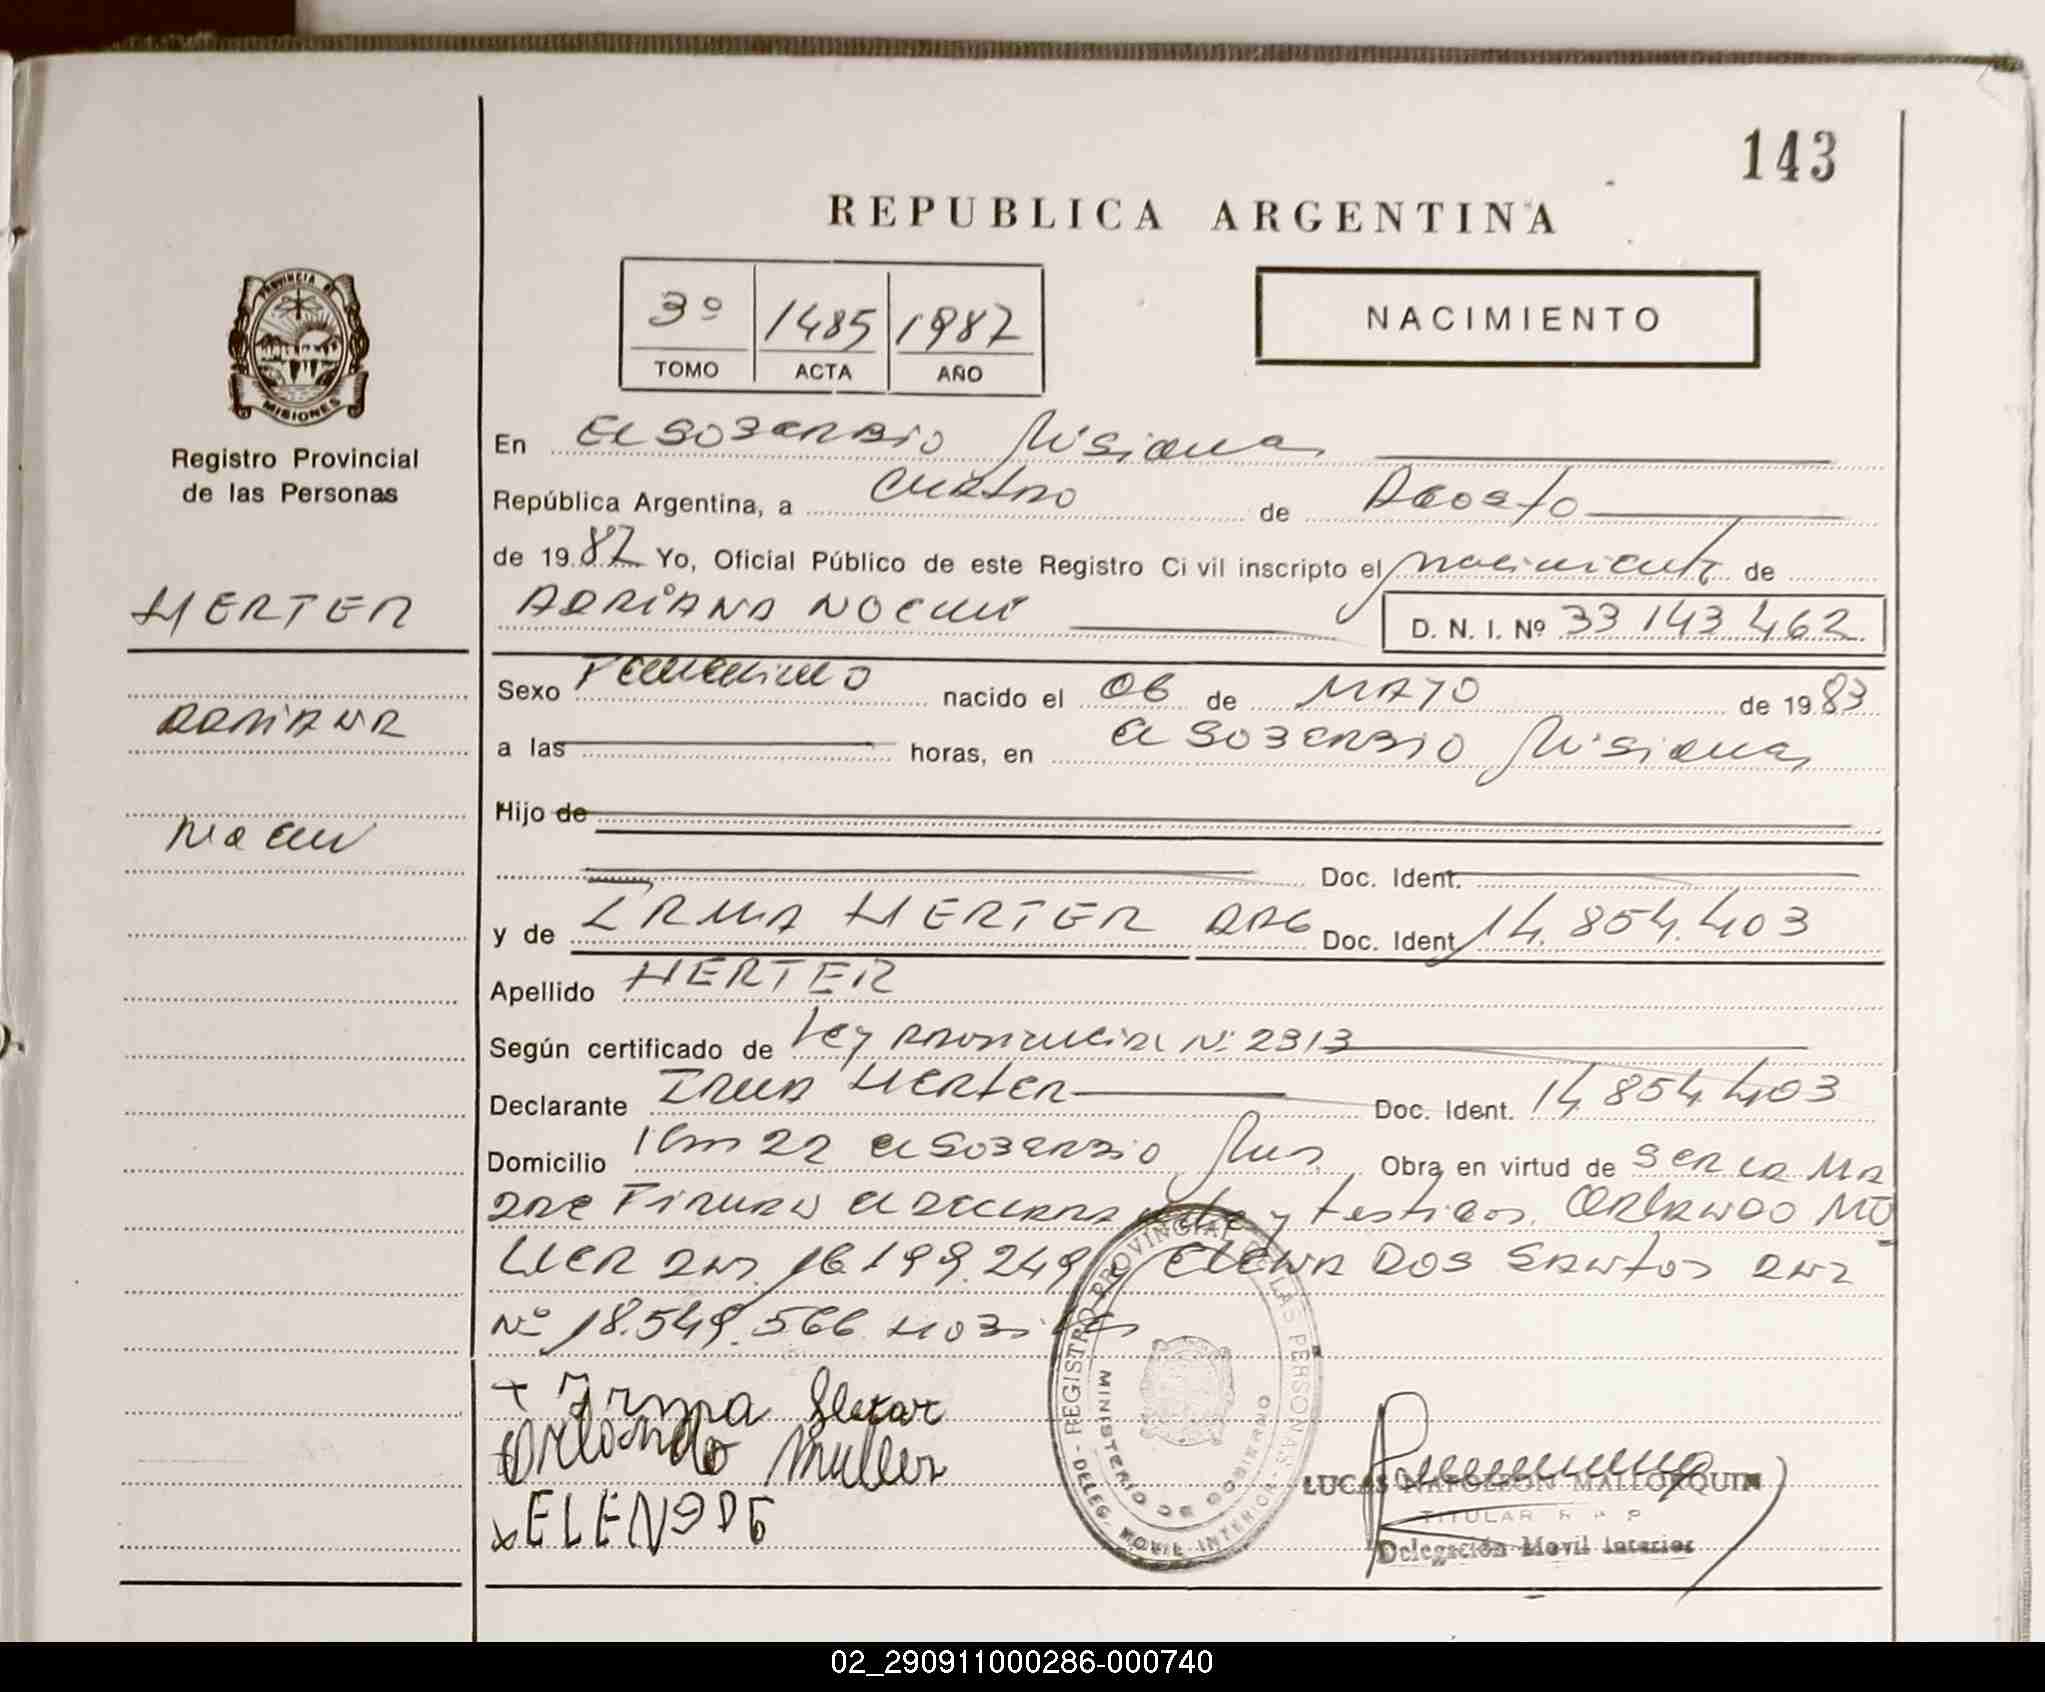 143
REPUBLICA ARGENTINA
3º 1485 1987
TOMO ACTA AÑO
NACIMIENTO
PROVINCIA DE
MISIONES
Registro Provincial
de las Personas
HERTER
ADRIANA
Noemi
En El SOBERBIO Misiones
República Argentina, a CUATRO de Agosto
de 1987 Yo, Oficial Público de este Registro Civil inscripto el nacimiento de
ADRIANA NOEMI D. N. I. Nº 33 143 462
Sexo Femenino nacido el 06 de MAYO de 1983
a las horas, en El SOBERBIO Misiones
Hijo de
Doc. Ident.
y de IRMA HERTER ARG Doc. Ident. 14.854.403
Apellido HERTER
Según certificado de Ley Provincial Nº 2313
Declarante IRMA HERTER Doc. Ident. 14 854 403
Domicilio Km 22 El SOBERBIO Mnes Obra en virtud de SER LA MA
DRE FIRMAN el DECLARANTE y testigos. ORLANDO MU
LLER DNI. 16.199.249 y ELENA DOS SANTOS DNI
Nº 18.549.566 HABILES
+ Irma Herter
Orlando Muller
x ELENADE
REGISTRO PROVINCIAL DE LAS PERSONAS - DELEG. MOVIL INTERIOR -
MINISTERIO DE GOBIERNO
LUCAS NAPOLEON MALLORQUIN
TITULAR R P P
Delegación Movil Interior
02_290911000286-000740